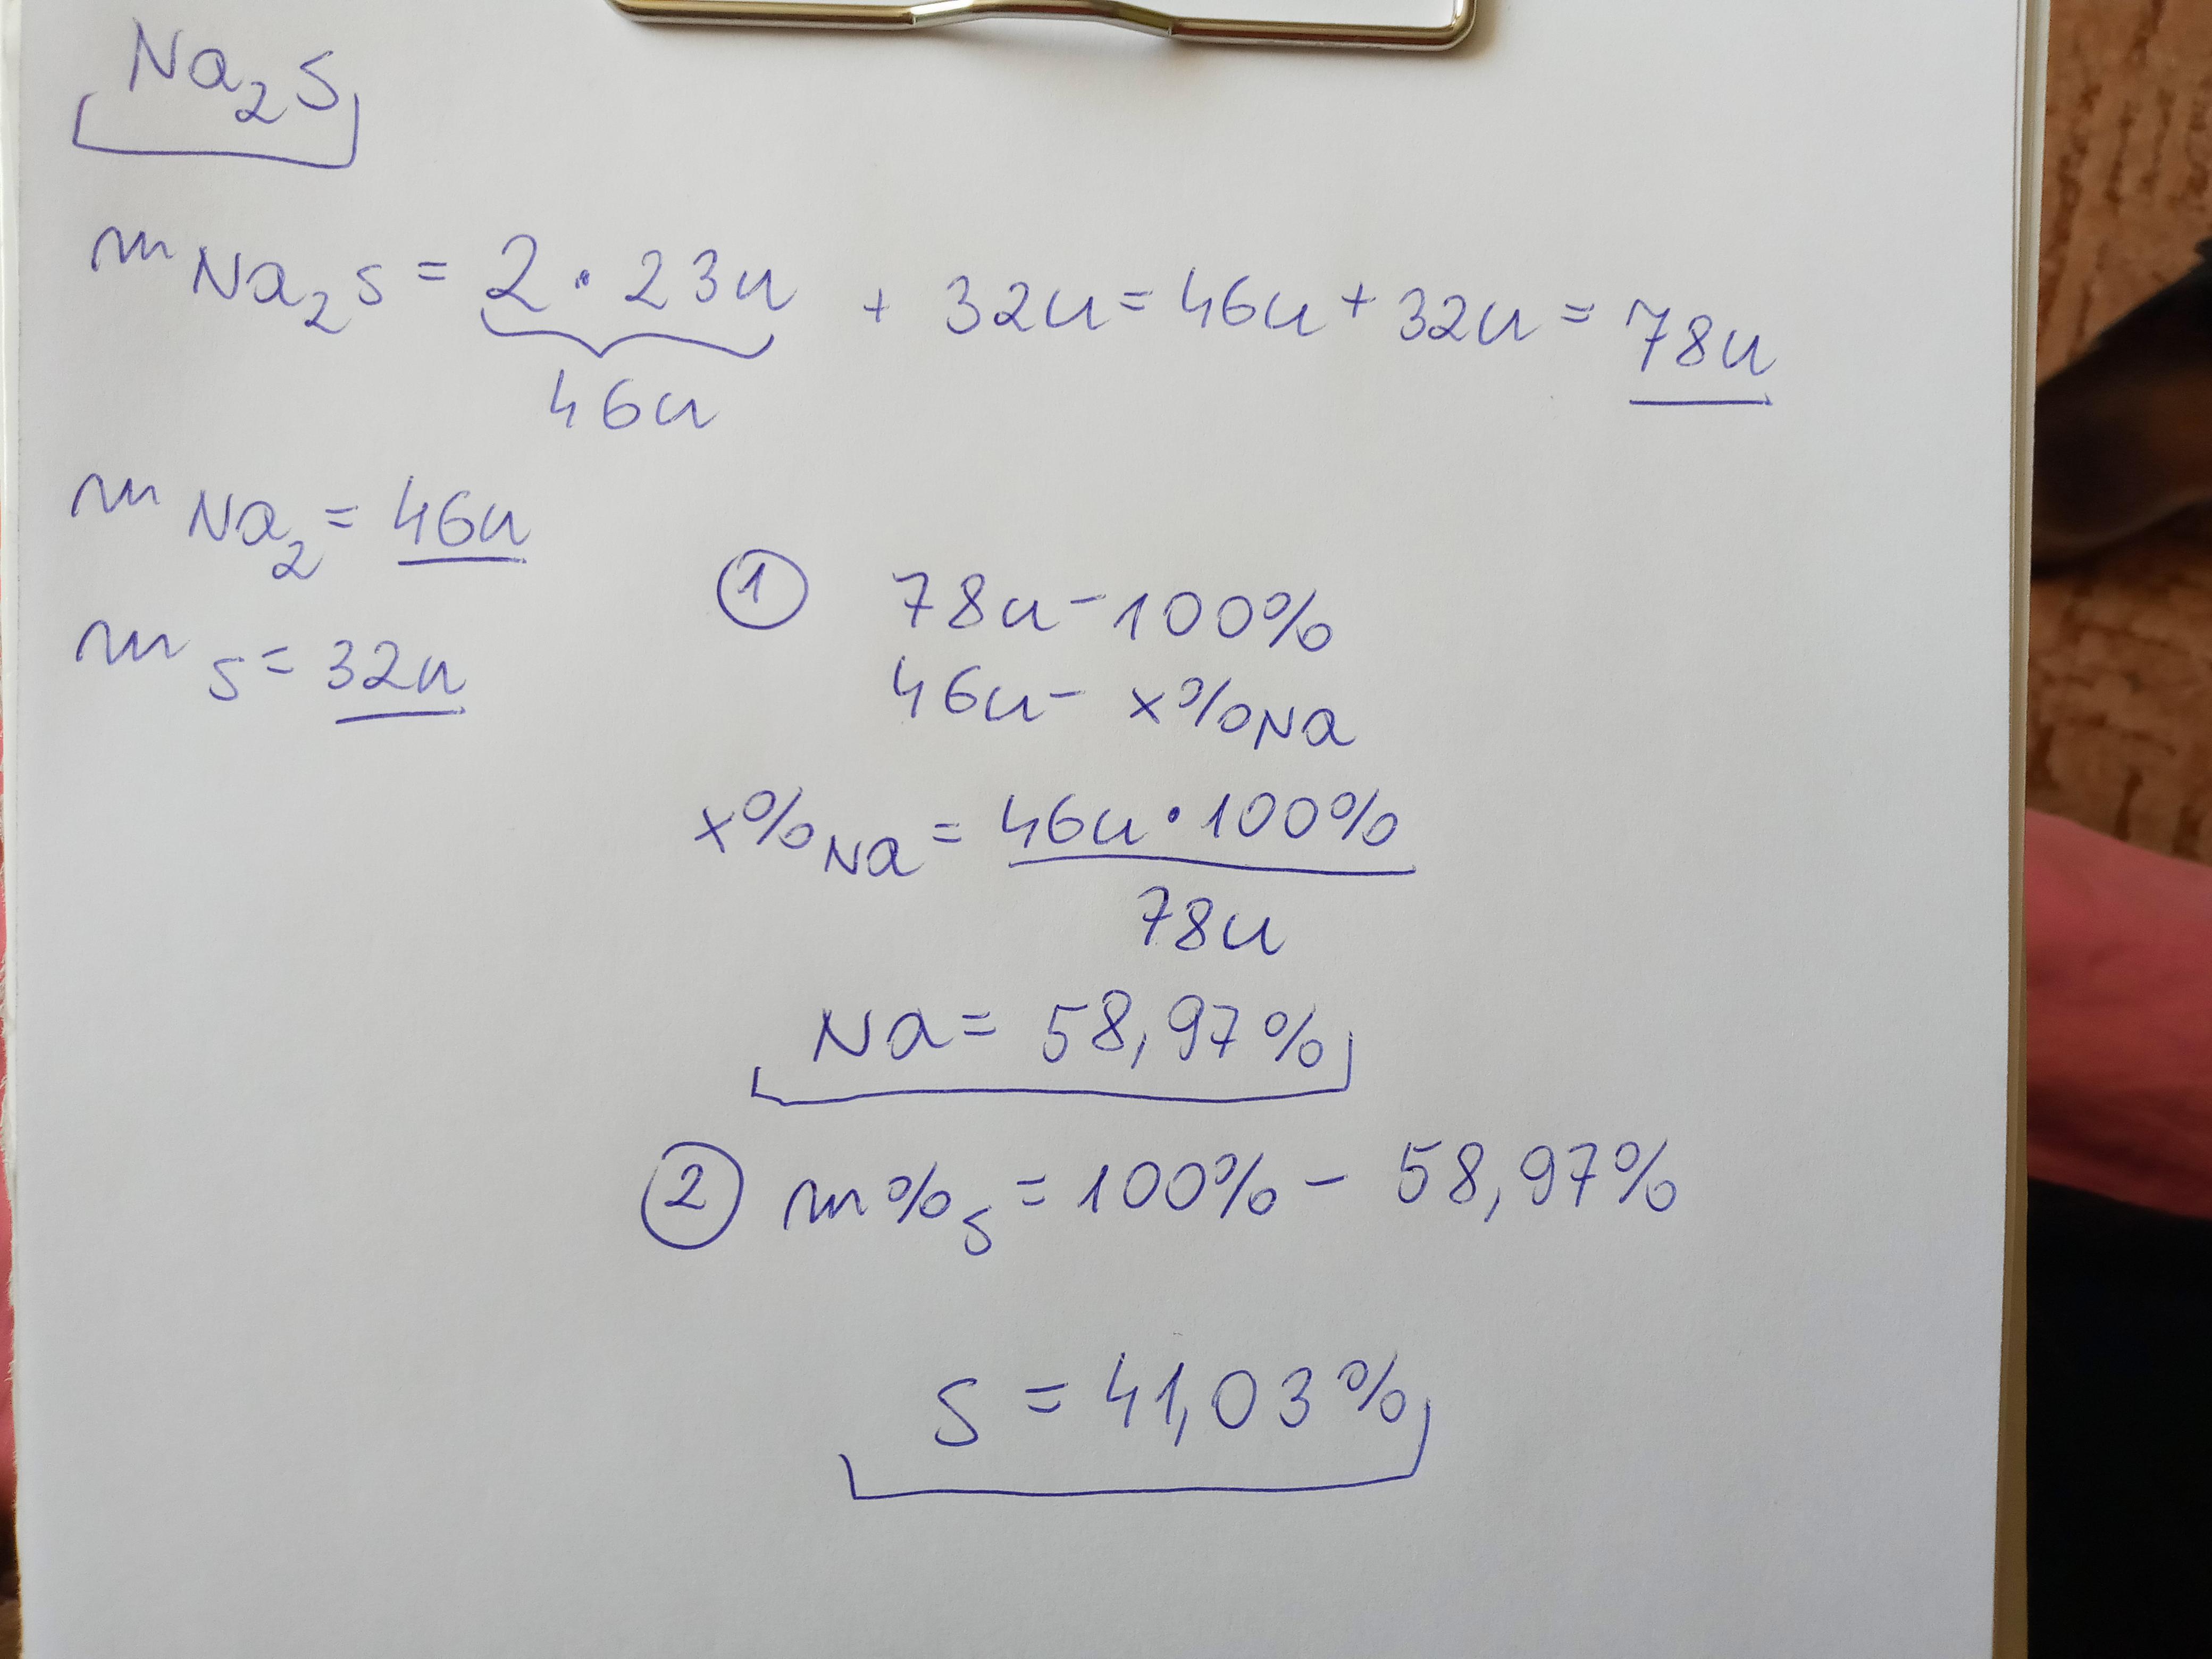 Na₂S
m Na₂S = 2 · 23u + 32u = 46u + 32u = 78u
46u
m Na₂ = 46u
m S = 32u
① 78u - 100%
46u - x% Na
x% Na = 46u · 100%
78u
Na = 58,97%
② m% S = 100% - 58,97%
S = 41,03%